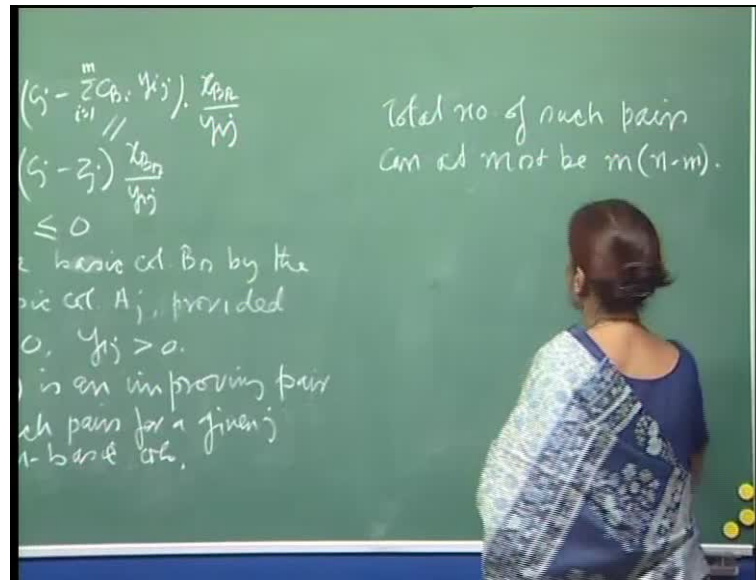 (Cj - Σ_{i=1}^{m} C_{Bi} y_{ij}) . x_{Br} / y_{rj}
//
(Cj - Zj) x_{Br} / y_{rj}
≤ 0
basic col. Br by the
col. Aj, provided
0, y_{rj} > 0.
) is an improving pair
pairs for a given j
basic col.
Total no. of such pairs
can at most be m(n-m).